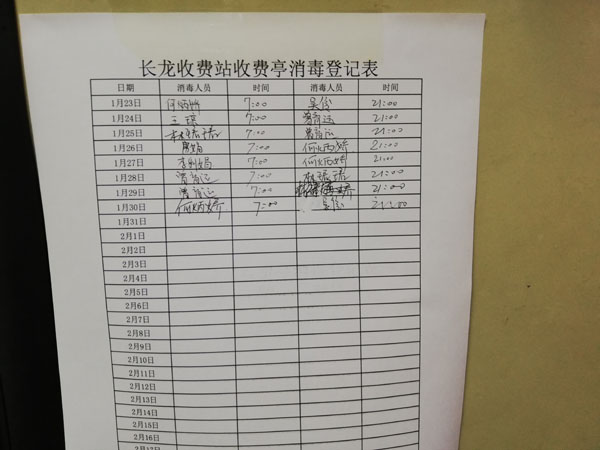 长龙收费站收费亭消毒登记表
日期 消毒人员 时间 消毒人员 时间
1月23日 何炳娇 7:00 吴俭 21:00
1月24日 7:00 21:00
1月25日 7:00 21:00
1月26日 7:00 何炳娇 21:00
1月27日 7:00 何炳娇 21:00
1月28日 7:00 21:00
1月29日 7:00 21:00
1月30日 何炳娇 7:00 吴俭 21:00
1月31日
2月1日
2月2日
2月3日
2月4日
2月5日
2月6日
2月7日
2月8日
2月9日
2月10日
2月11日
2月12日
2月13日
2月14日
2月15日
2月16日